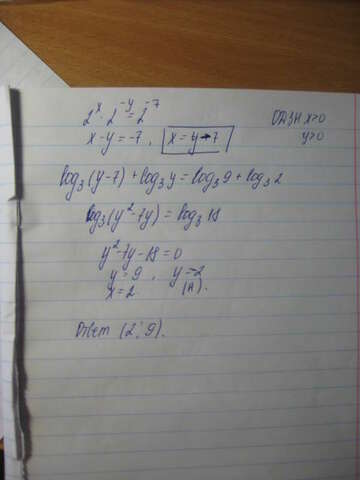 2^x · 2^-y = 2^-7
ОДЗ x>0
x-y=-7, x=y-7
y>0
log₃(y-7)+log₃y=log₃9+log₃2
log₃(y²-7y)=log₃18
y²-7y-18=0
y=9, y=-2
x=2
Ответ (2;9).